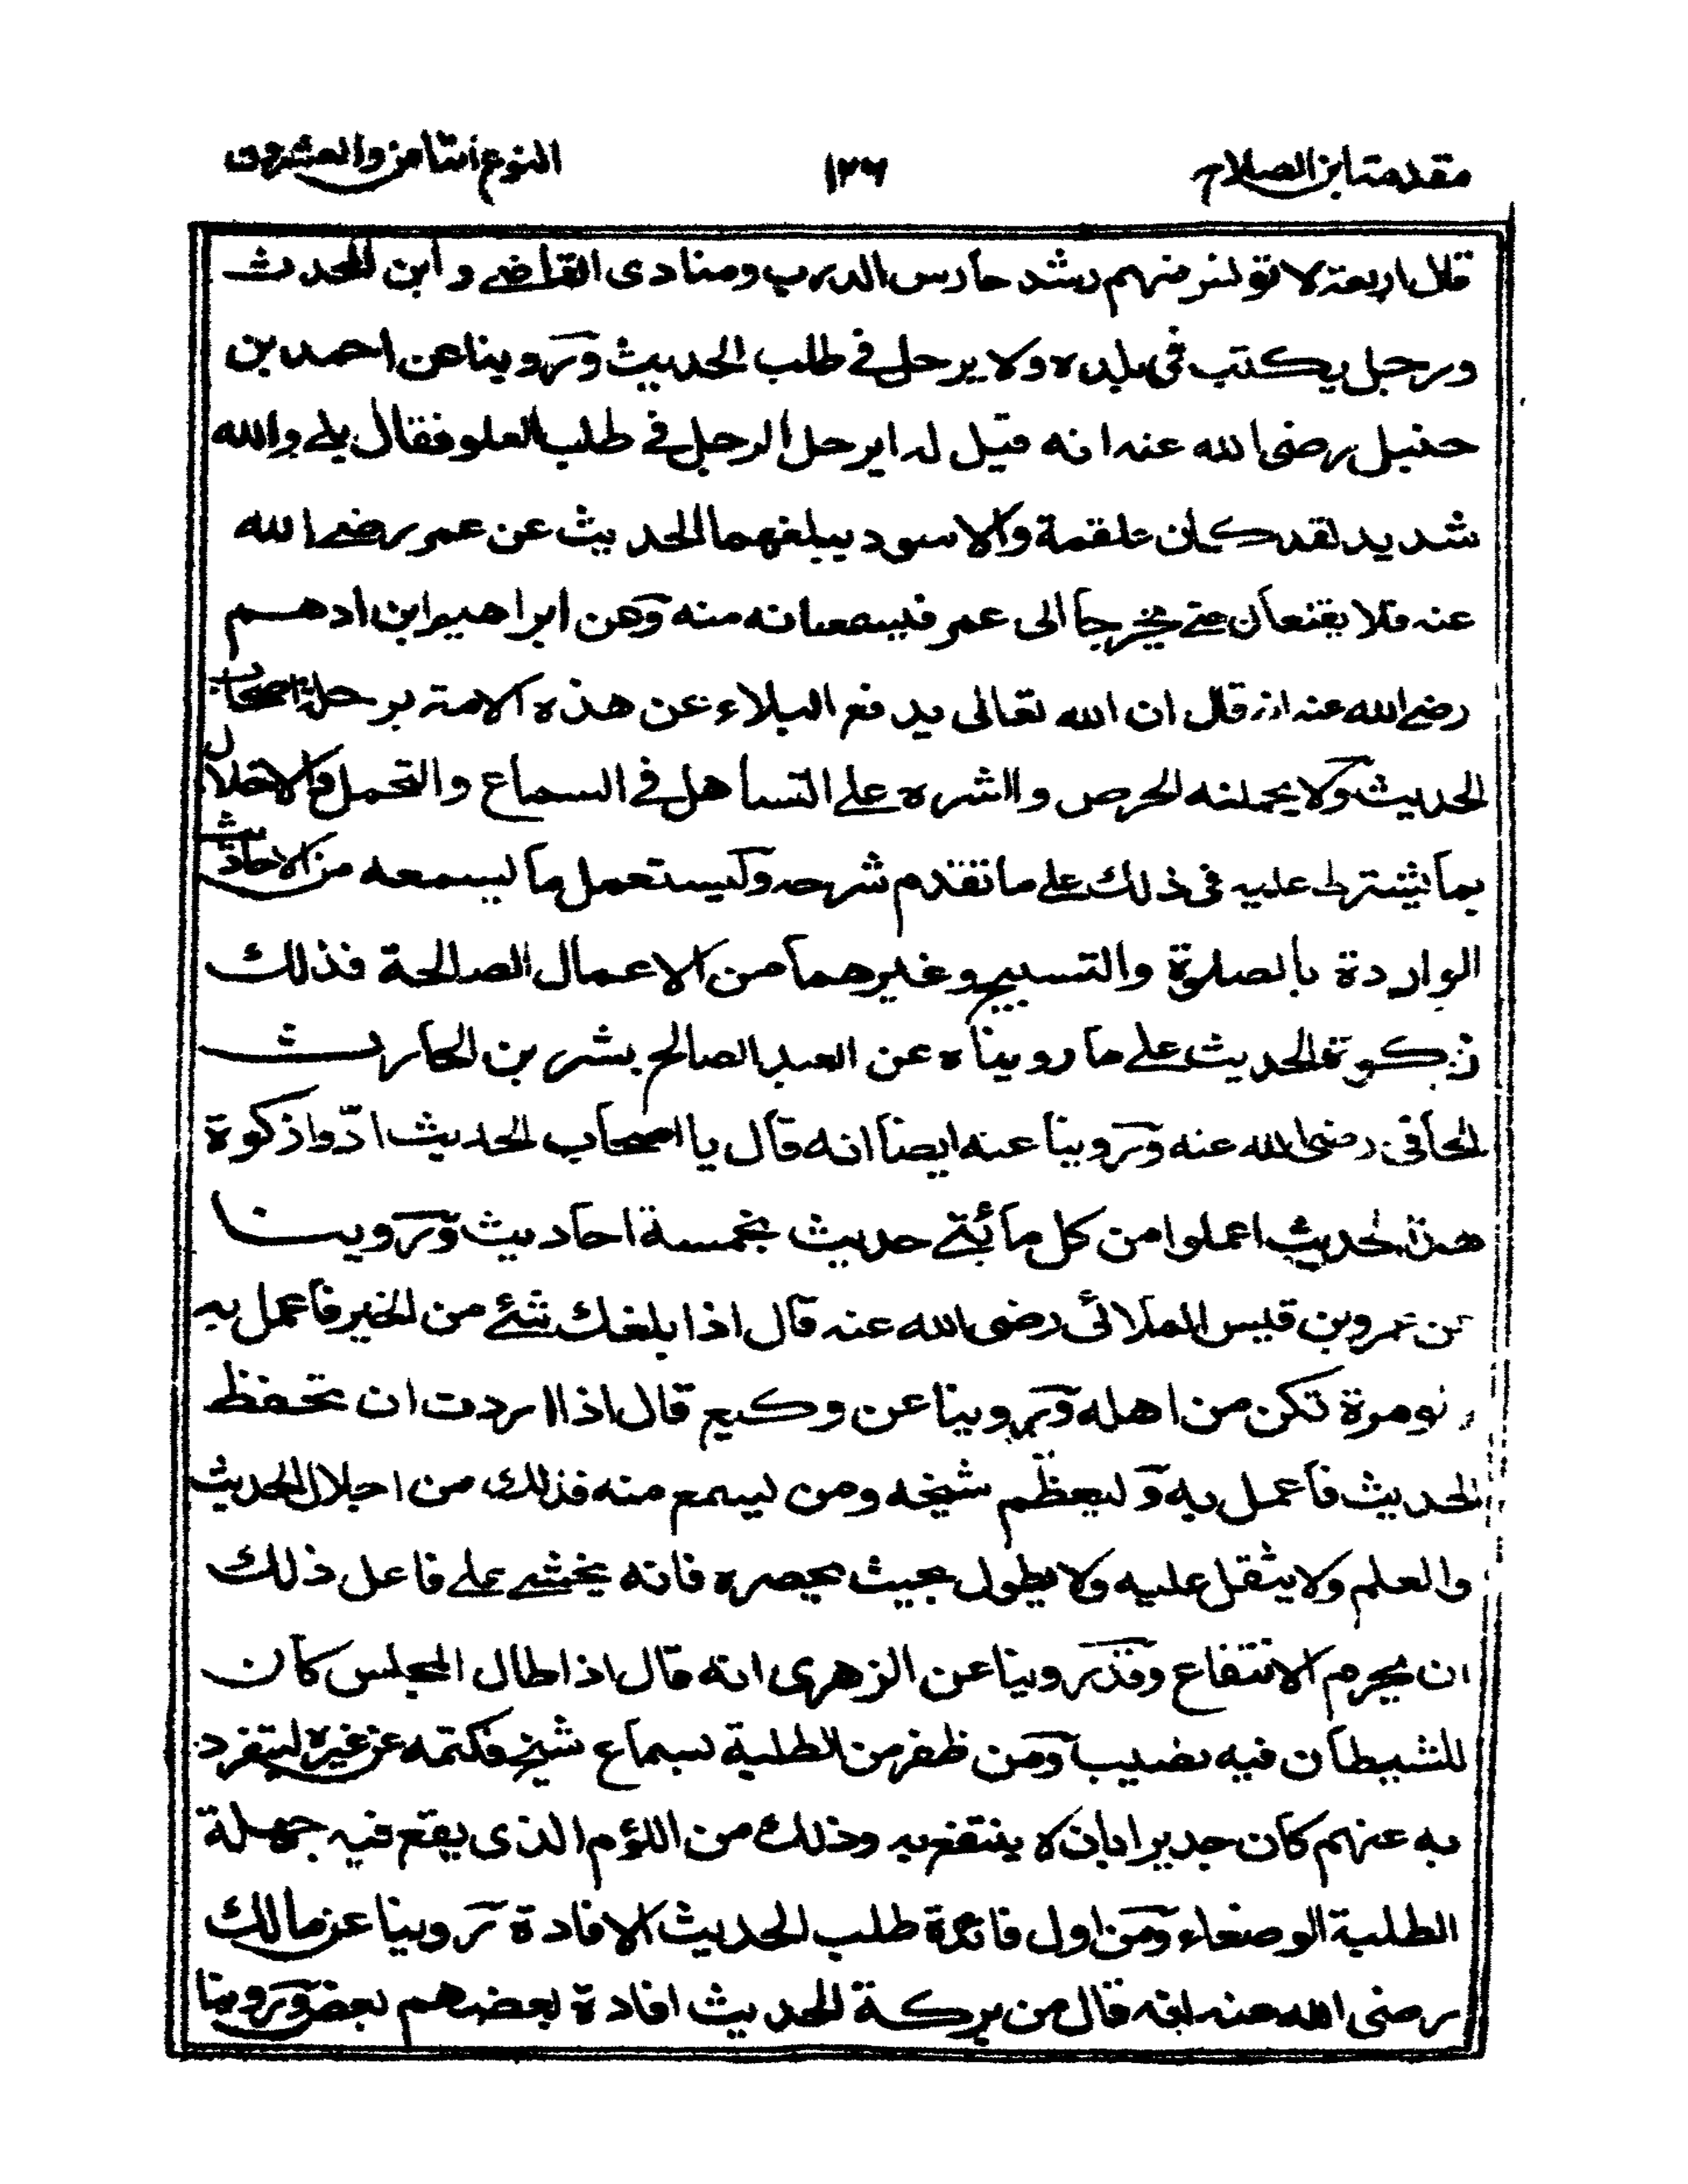 مقدمة ابن الصلاح ١٢٦ النوع الثامن والعشرون
قال اربعة لا تونس منهم رشد حارس الدرب ومنادى القاضے وابن المحدث
ورجل يكتب فی بلده ولا يرحل فے طلب الحديث وروينا عن احمد بن
حنبل رضی الله عنه انه قيل له ايرحل الرجل فے طلب العلو فقال بلے والله
شديد لقد كان علقمة والاسود يبلغهما الحديث عن عمر رضے الله
عنه فلا يقنعان حتے يخرجا الی عمر فيسمعانه منه وعن ابراهيم ابن ادهم
رضے الله عنه انه قال ان الله تعالی يدفع البلاء عن هذه الامة برحلة اصحاب
الحديث ولا يحملنه الحرص والشره علے التساهل فے السماع والتحمل والاخلال
بما يشترط عليه فی ذلك علے ما تقدم شرحه وليستعمل ما يسمعه من الاحاديث
الواردة بالصلوة والتسبيح وغيرهما من الاعمال الصالحة فذلك
زكوة الحديث علے ما رويناه عن العبد الصالح بشر بن الحارث
الحافی رضی الله عنه وروينا عنه ايضا انه قال يا اصحاب الحديث ادّوا زكوة
هذا الحديث اعملوا من كل مائتے حديث بخمسة احاديث وروينا
عن عمرو بن قيس الملائی رضی الله عنه قال اذا بلغك شئے من الخير فاعمل به
و لو مرة تكن من اهله وروينا عن وكيع قال اذا اردت ان تحفظ
الحديث فاعمل به وليعظّم شيخه ومن يسمع منه فذلك من اجلال الحديث
والعلم ولا يثقل عليه ولا يطول بحيث يضجره فانه يخشے علے فاعل ذلك
ان يحرم الانتفاع وقد روينا عن الزهری انه قال اذا طال المجلس كان
للشيطان فيه نصيب ومن ظفر من الطلبة بسماع شيخ فكتمه عن غيره ليتفرد
به عنهم كان جديرا بان لا ينتفع به وذلك من اللؤم الذی يقع فيه جهلة
الطلبة الوضعاء ومن اول فائدة طلب الحديث الافادة روينا عن مالك
رضی الله عنه انه قال من بركة الحديث افادة بعضهم بعضا وروينا